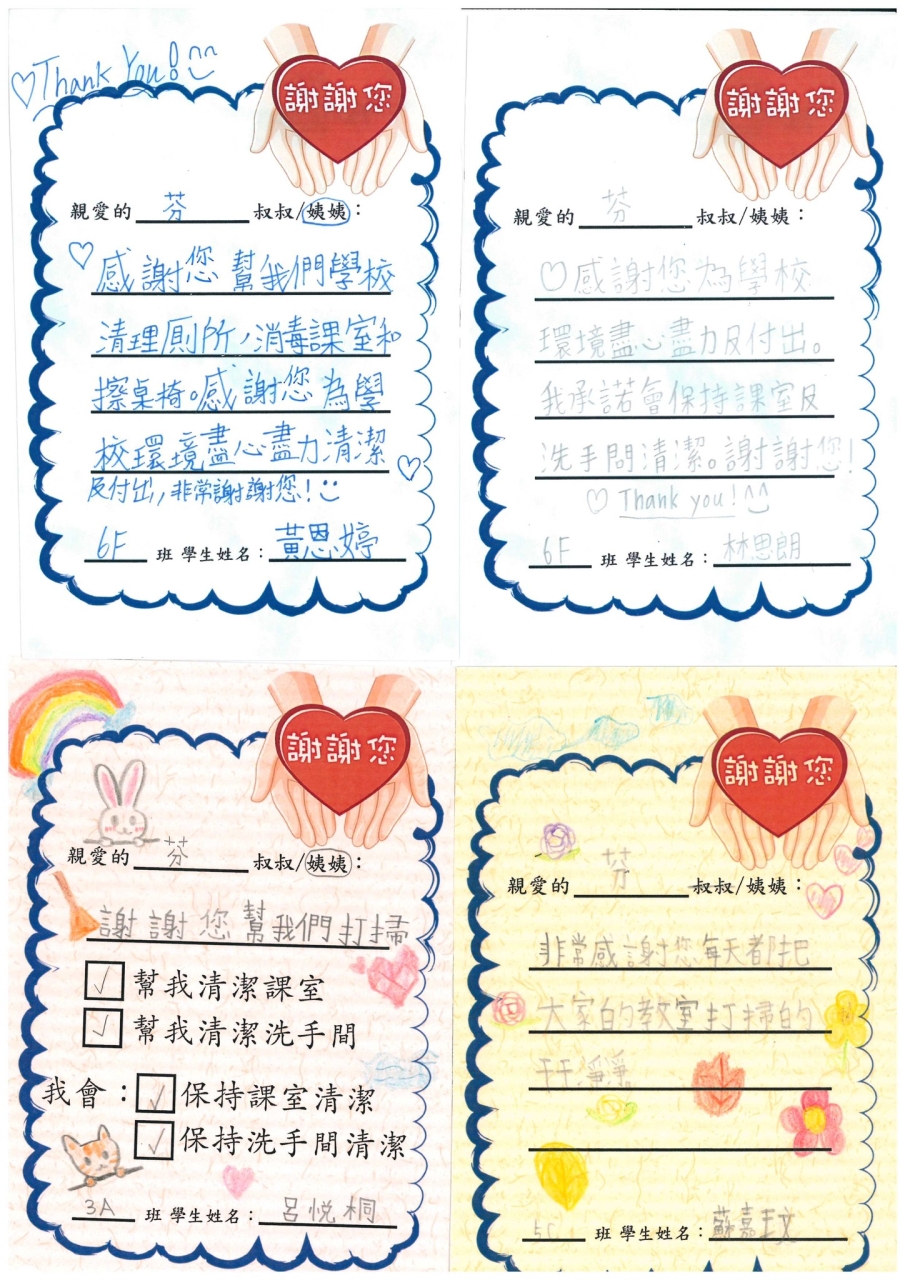 ♡Thank You!
謝謝您
親愛的 芬 叔叔/姨姨：
感謝您幫我們學校
清理厠所，消毒課室和
擦桌椅。感謝您為學
校環境盡心盡力清潔
及付出，非常謝謝您！
6F 班 學生姓名：黃恩婷
謝謝您
親愛的 芬 叔叔/姨姨：
♡感謝您為學校
環境盡心盡力及付出。
我承諾會保持課室及
洗手間清潔。謝謝您！
♡ Thank you!^^
6F 班 學生姓名：林思朗
謝謝您
親愛的 芬 叔叔/姨姨：
謝謝您幫我們打掃
✓ 幫我清潔課室
✓ 幫我清潔洗手間
我會：✓ 保持課室清潔
✓ 保持洗手間清潔
3A 班 學生姓名：呂悦桐
謝謝您
親愛的 芬 叔叔/姨姨：
非常感謝您每天都把
大家的教室打掃的
干干淨淨
5C 班 學生姓名：蘇嘉